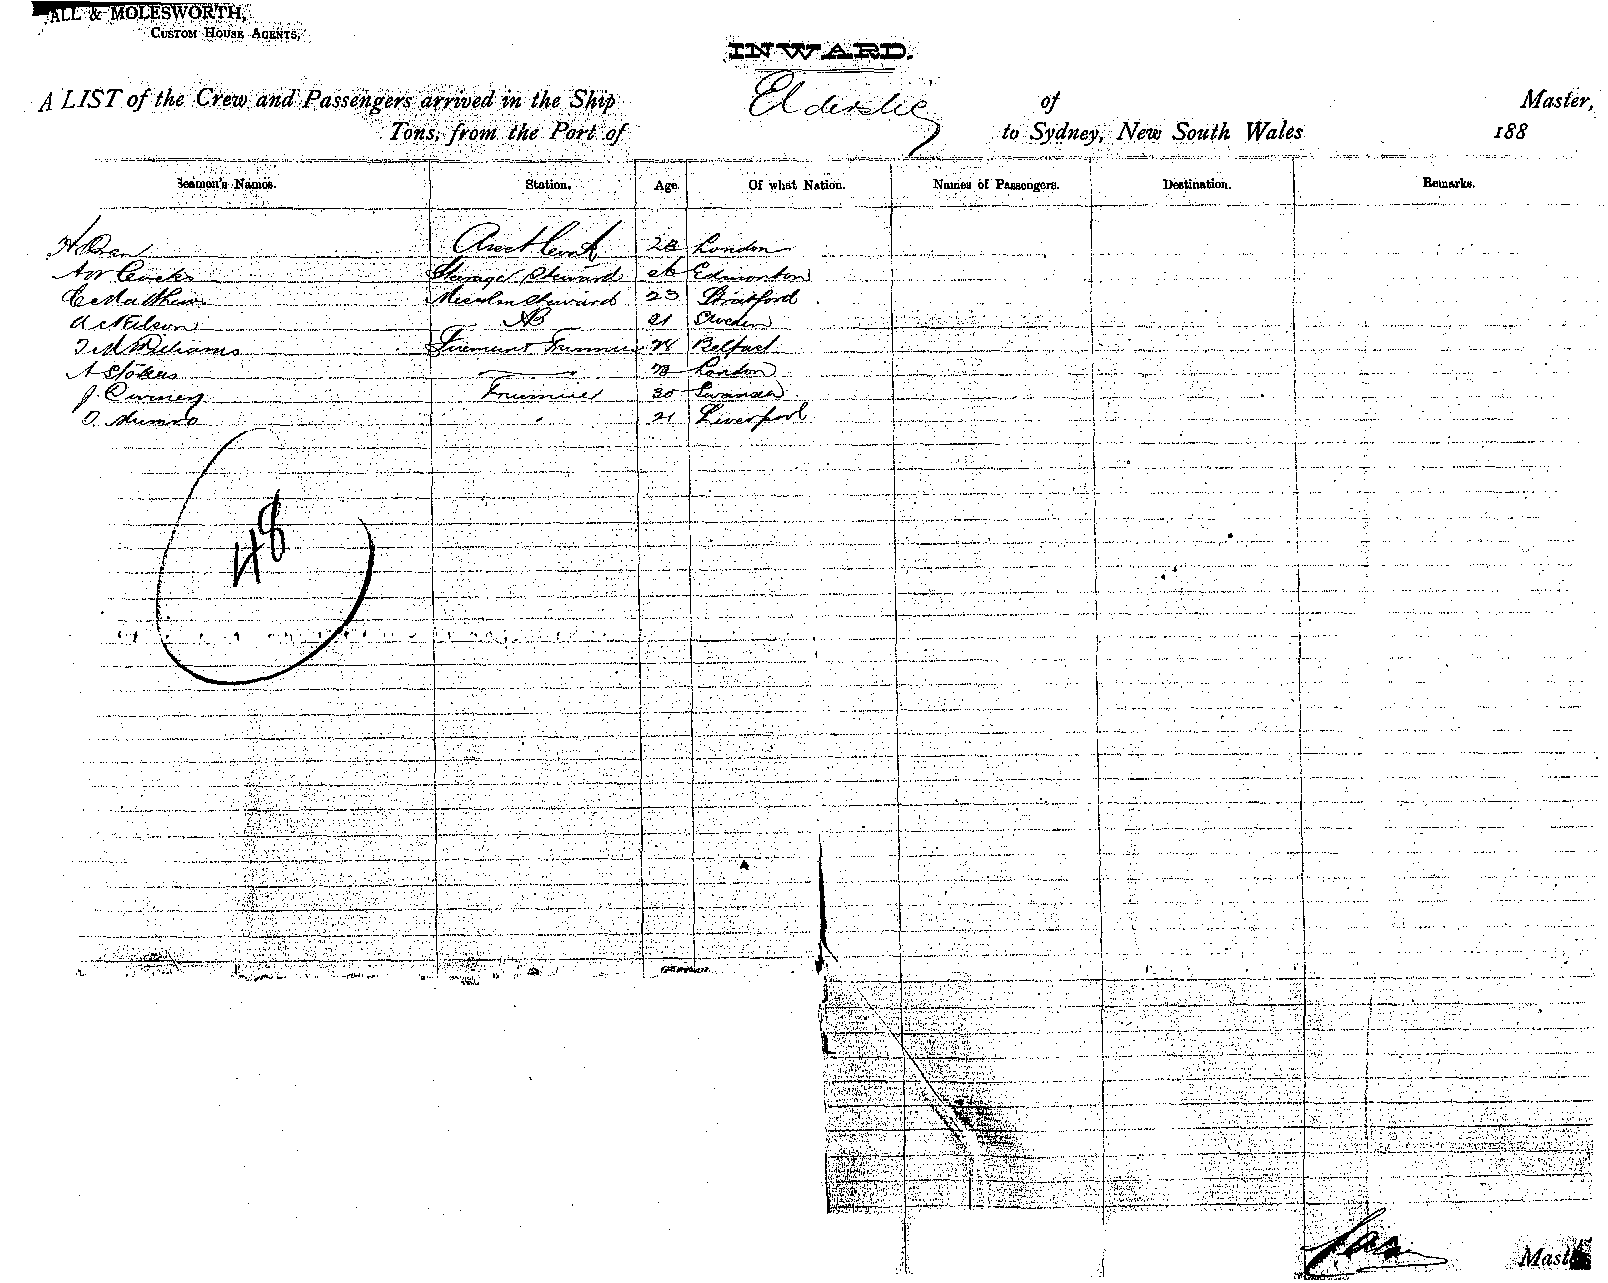 ALL & MOLESWORTH,
CUSTOM HOUSE AGENTS,
INWARD.
A LIST of the Crew and Passengers arrived in the Ship Elderslie of Master,
Tons, from the Port of to Sydney, New South Wales 188
Seamen's Names. Station. Age. Of what Nation. Names of Passengers. Destination. Remarks.
28 London
Steward 26 Edmonton
C Matthews Steward 23 Stratford
A Neilson AB 21 Sweden
Williams Fireman & Trimmer Belfast
A Stokes London
J. Trimmer 30 Swansea
D. Munro " 21 Liverpool
48
Master